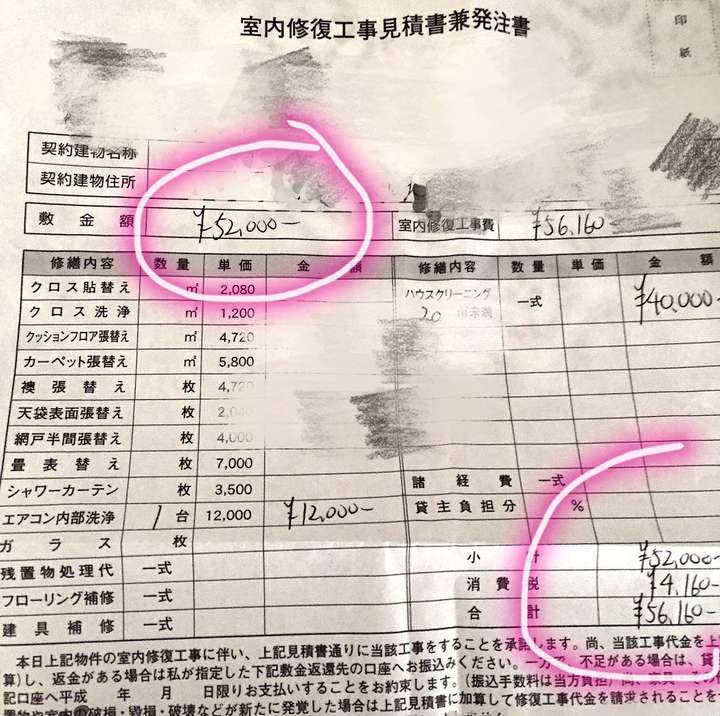 室内修復工事見積書兼発注書
印
紙
契約建物名称
契約建物住所
敷金額 ¥52,000- 室内修復工事費 ¥56,160
修繕内容 数量 単価 金額 修繕内容 数量 単価 金額
クロス貼替え ㎡ 2,080 ハウスクリーニング 一式 ¥40,000-
20 ㎡未満
クロス洗浄 ㎡ 1,200
クッションフロア張替え ㎡ 4,720
カーペット張替え ㎡ 5,800
襖張替え 枚 4,720
天袋表面張替え 枚 2,040
網戸半間張替え 枚 4,000
畳表替え 枚 7,000 諸経費 一式
シャワーカーテン 枚 3,500 貸主負担分 %
エアコン内部洗浄 1台 12,000 ¥12,000-
ガラス 枚 小計 ¥52,000-
残置物処理代 一式 消費税 ¥4,160-
フローリング補修 一式 合計 ¥56,160-
建具補修 一式
本日上記物件の室内修復工事に伴い、上記見積書通りに当該工事をすることを承諾します。尚、当該工事代金を上
算)し、返金がある場合は私が指定した下記敷金返還先の口座へお振込みください。一方で、不足がある場合は、貸
記口座へ平成 年 月 日限りお支払いすることをお約束します。(振込手数料は当方負担)尚、
物や室内の破損・毀損・破壊などが新たに発覚した場合は上記見積書に加算して修復工事代金を請求されることを